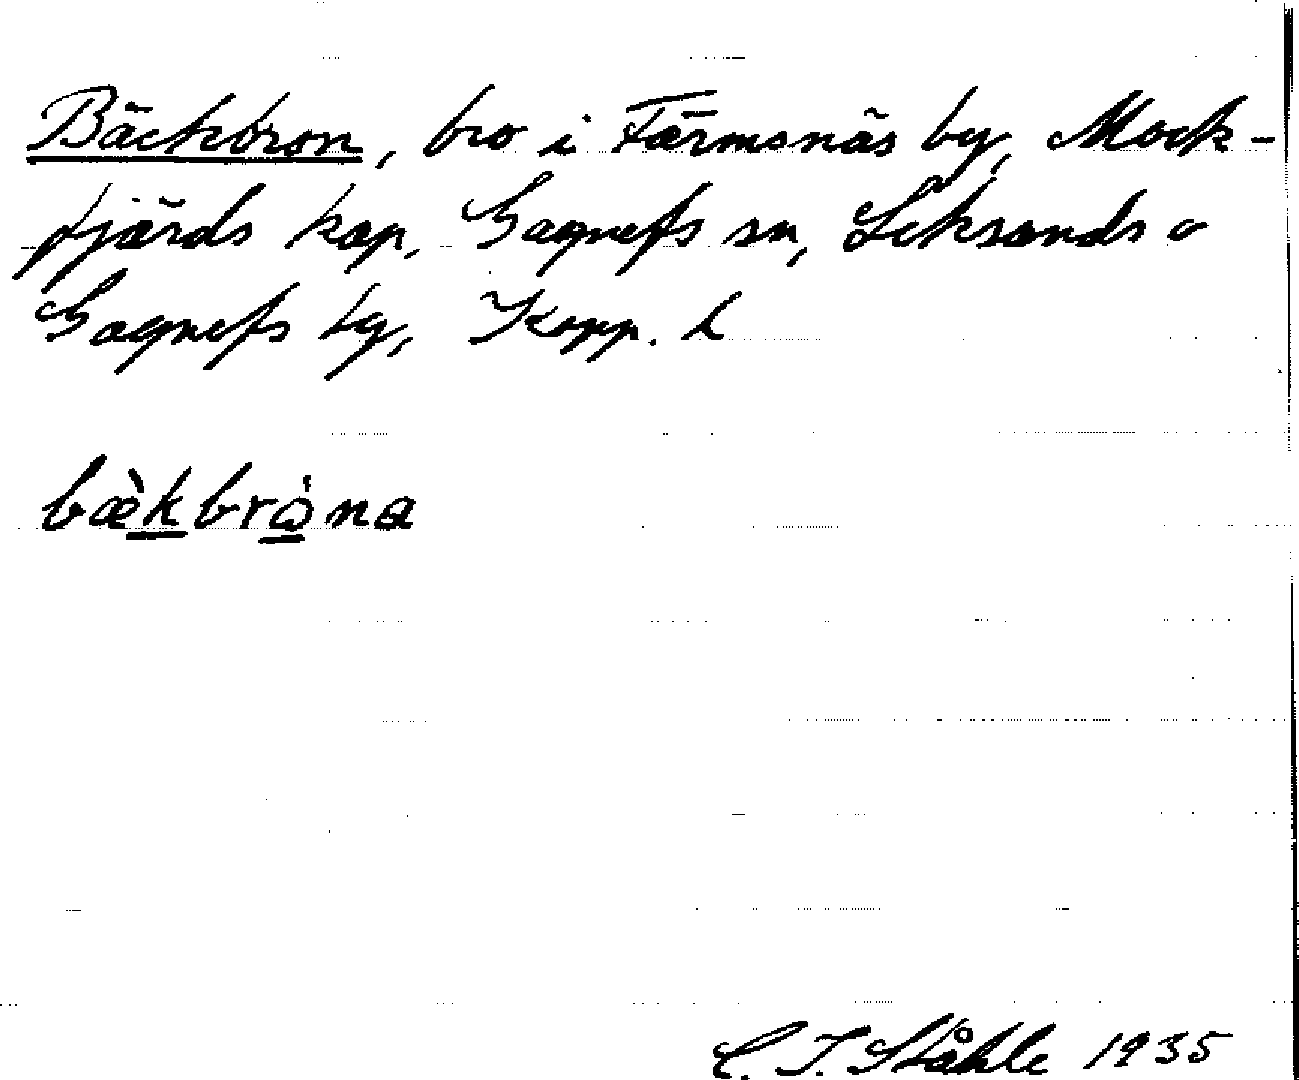 Bäckbron, bro i Färmsnäs by, Mock-
fjärds kap, Gagnefs sn, Leksands o
Gagnefs tg, Kopp. l
bæ̀kbrω̇na
C. I. Ståhle 1935